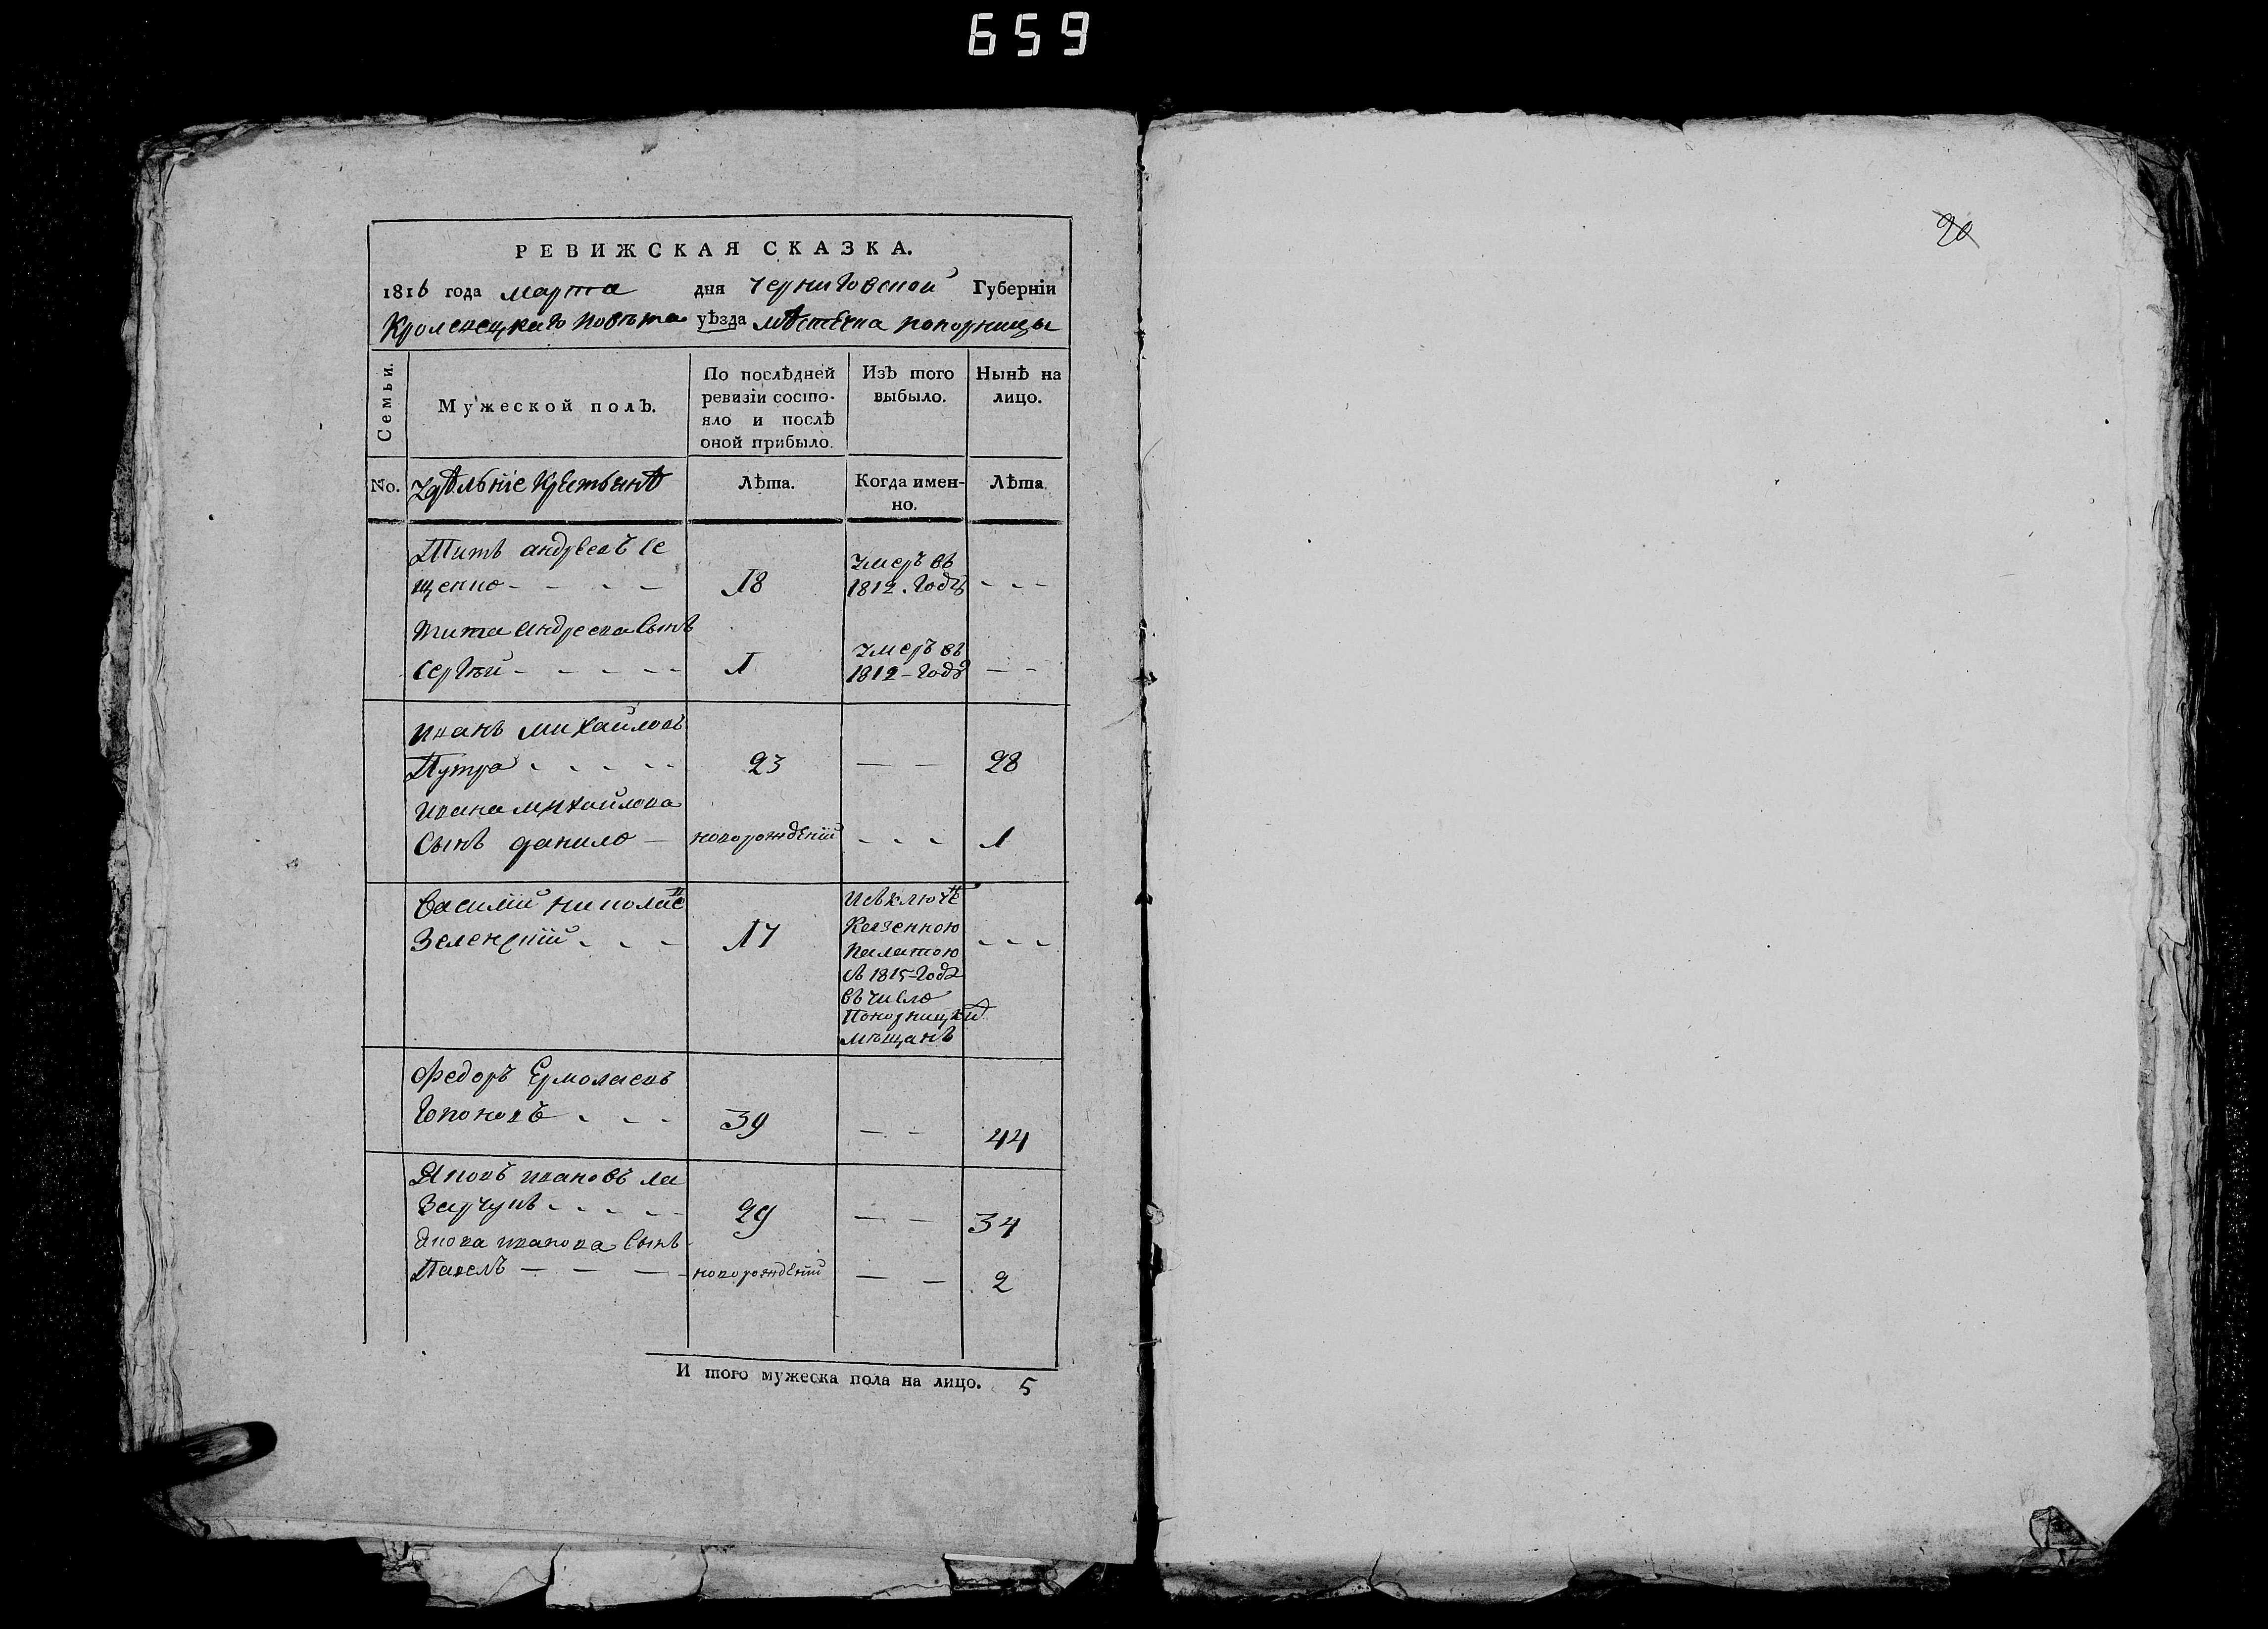 659
20
РЕВИЖСКАЯ СКАЗКА.
1816 года марта дня Черниговской Губерніи
Кролевецкаго повѣта уѣзда мѣстечка Понорницы
Семьи.
Мужеской полъ.
По послѣдней
ревизіи состо-
яло и послѣ
оной прибыло.
Изъ того
выбыло.
Нынѣ на
лицо.
No.
удѣльніе крестьянѣ
Лѣта.
Когда имен-
но.
Лѣта
Титъ андреевъ Се
щенко
18
умеръ въ
1812. году
Тита андреева сынъ
Сергѣй
1
умеръ въ
1812 - году
иванъ михайловъ
Путра
23
28
ивана михайлова
сынъ данило
новорожденій
1
василій николаев
Зеленскій
17
исключе
Казенною
палатою
съ 1815-года
въ число
Понорницки
мѣщанъ
Федоръ Ермолаевъ
39
44
Яковъ ивановъ ла
зарчукъ
29
34
якова иванова сынъ
Павелъ
новорожденій
2
И того мужеска пола на лицо. 5